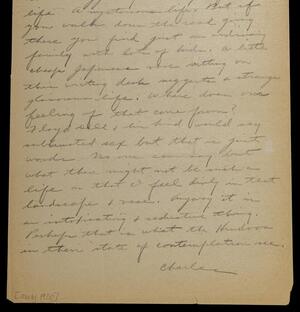 life. A mysterious life. But if
you walk down the road going
there you find just an ordinary
family with lots of kids. A little
cheap Japanese vase sitting on
their writing desk suggests a strange
glamorous life. Where does one
feeling of that come from?
Floyd Dell & his kind would say
sublimated sex but that is just
words. No one can say but
what there might not be such a
life as that I feel in that
landscape & vase. Anyway it is
an intoxicating & seductive thing.
Perhaps that is what the Hindoos
in their state of contemplation see.
Charles